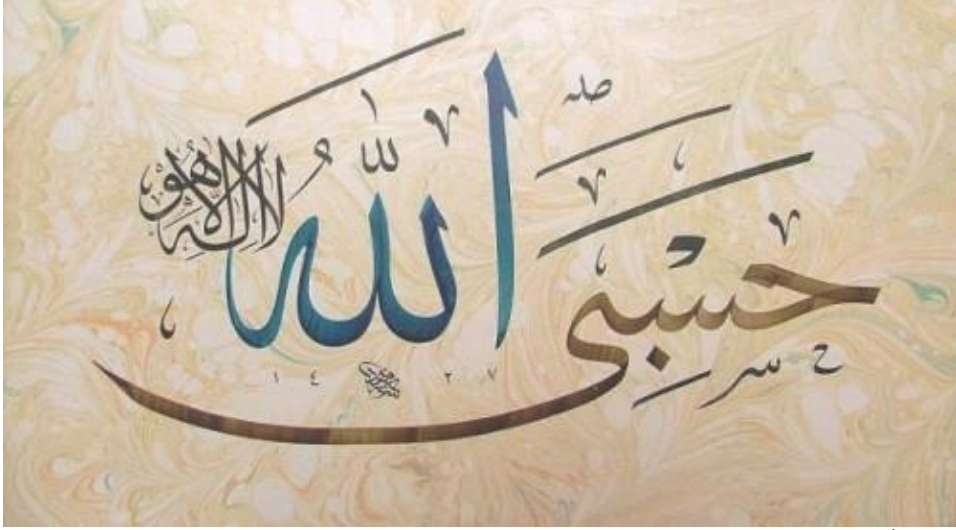 حَسْبِيَ اللّٰهُ
لا اله الا هو
١٤٢٧